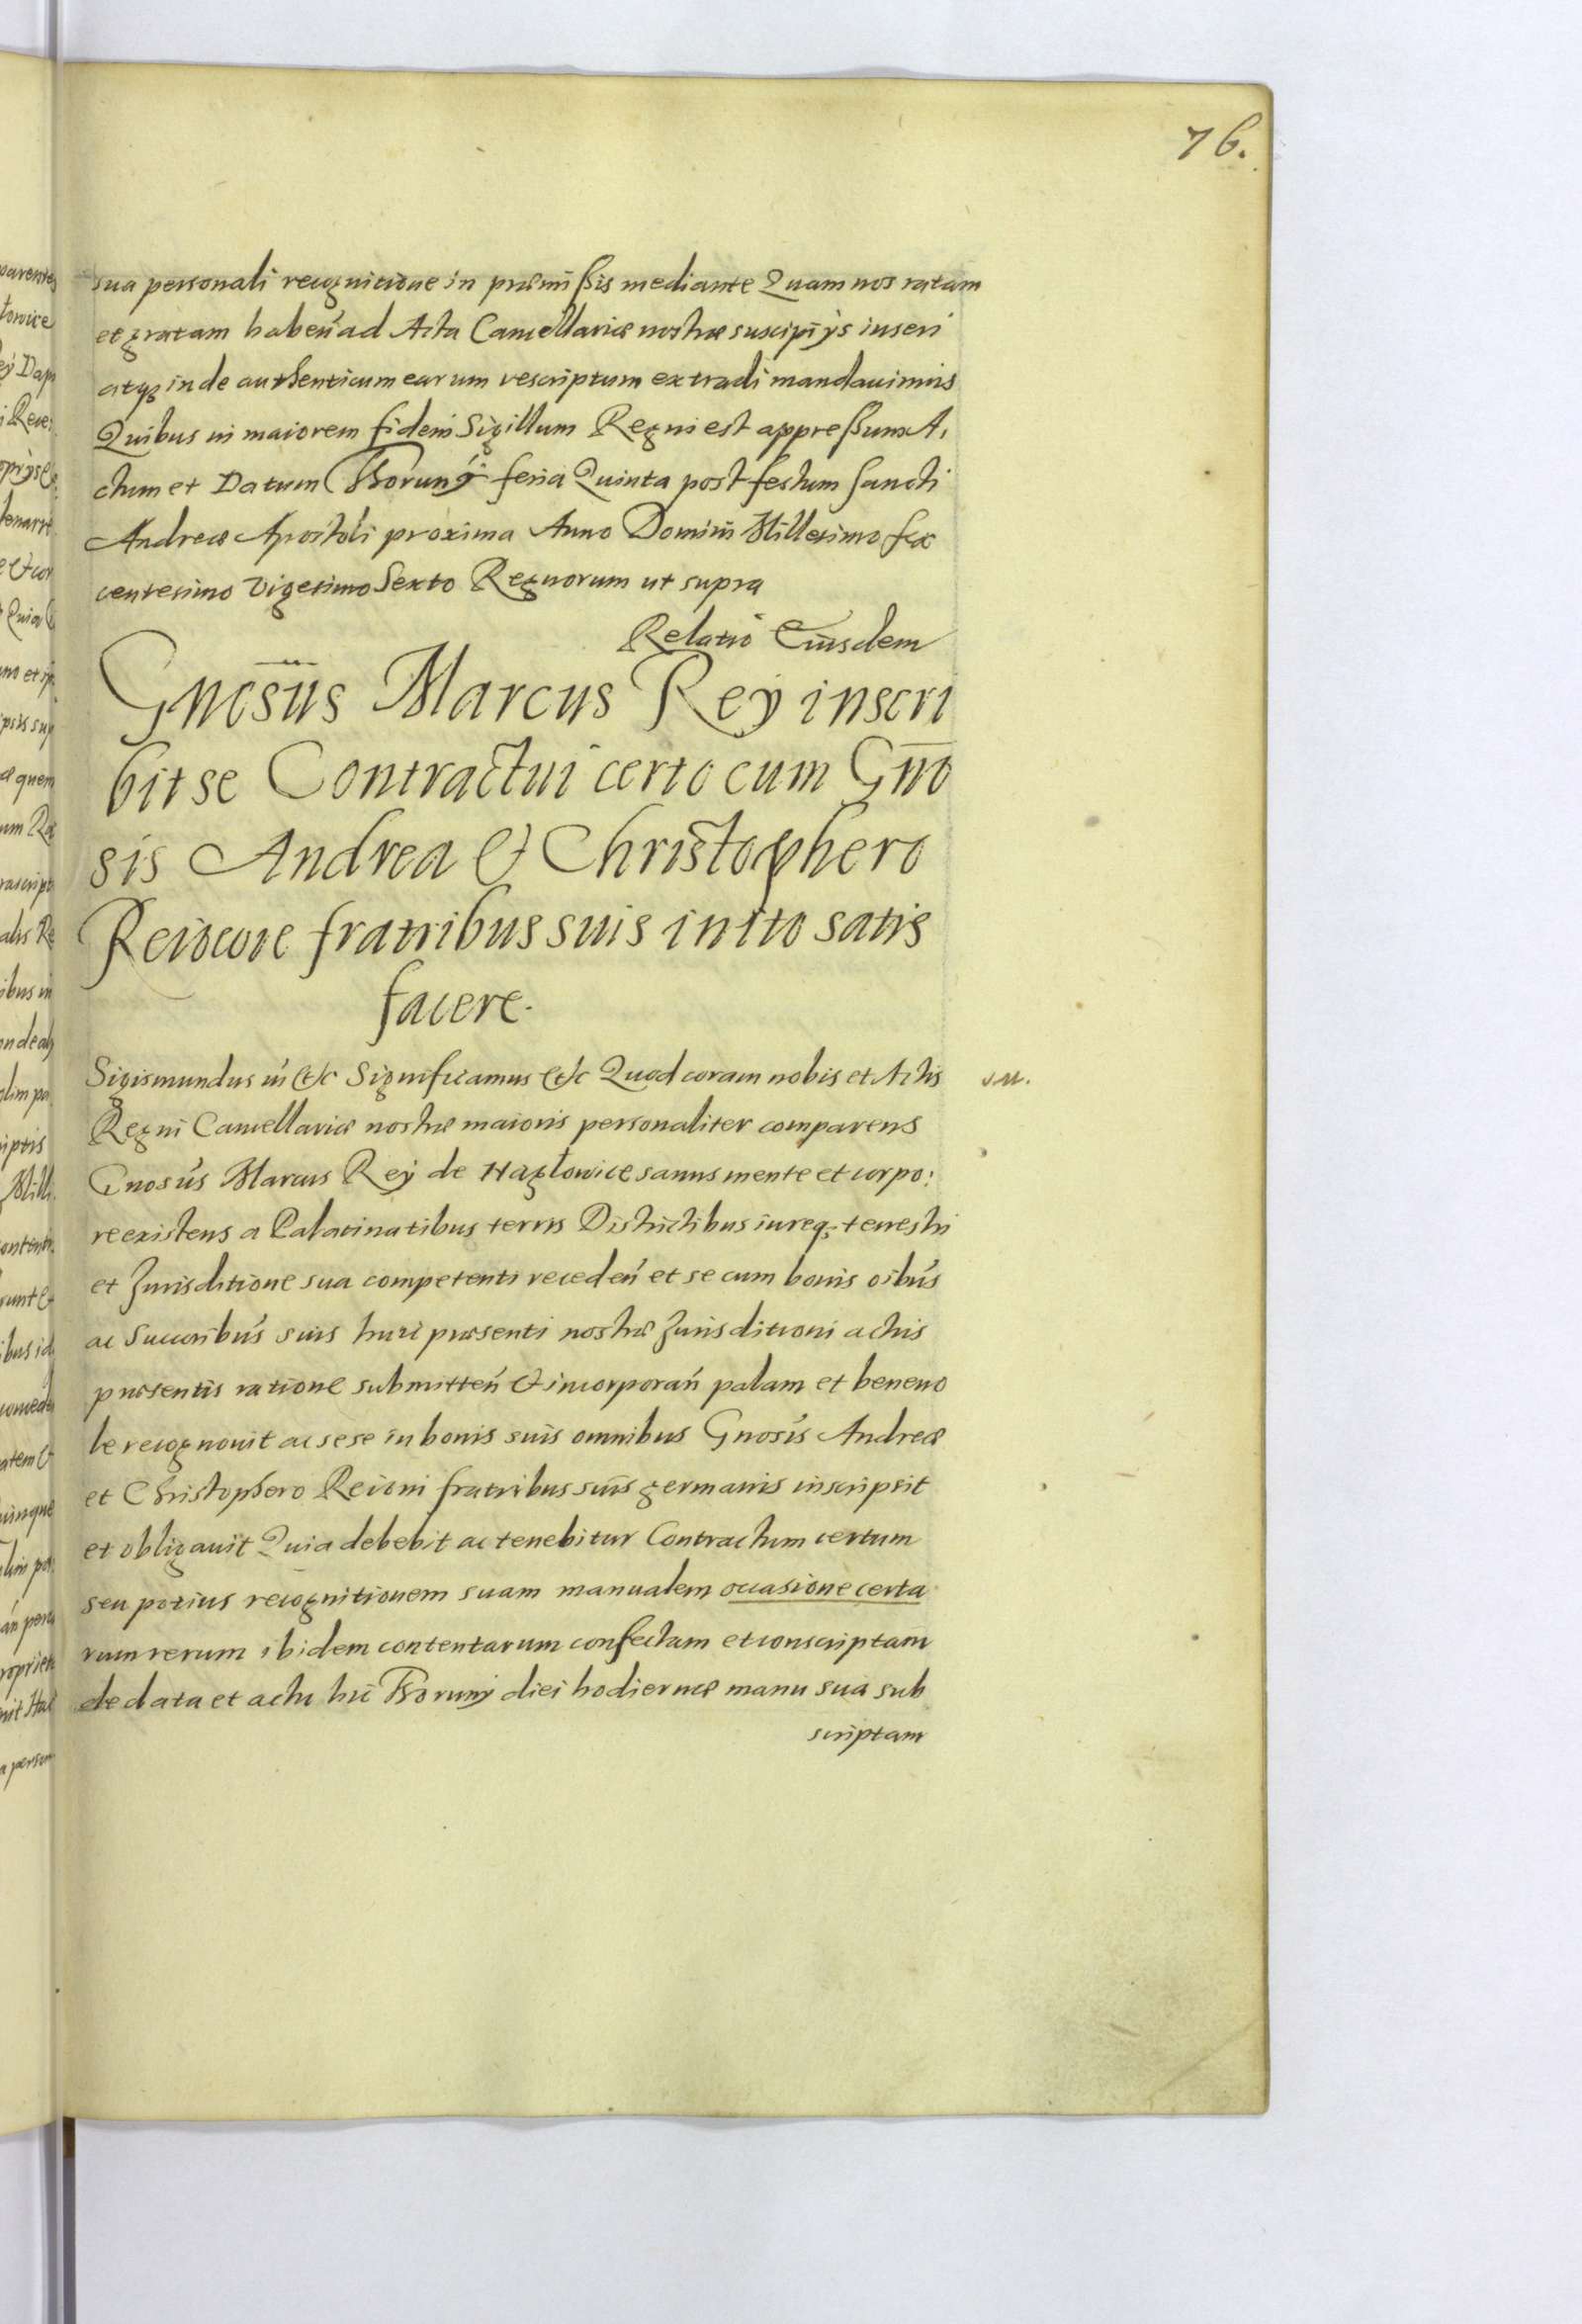 76.
sua personali recognitione in præmißis mediante Quam nos ratam
et gratam habeń ad Acta Cancellariæ nostræ suscipi ijs inseri
atq3 inde authenticum earum rescriptum extradi mandauimus
Quibus in maiorem fidem Sigillum Regni est appreßum A,
ctum et Datum Thoruny feria Quinta post festum Sancti
Andreæ Apostoli proxima Anno Domini Millesimo sex
centesimo Vigesimo Sexto Regnorum ut supra
Relatio Eiusdem
Gnosus Marcus Rey inscri
bit se Contractui certo cum Gno
sis Andrea et Christophero
fratribus suis inito satis
facere.
Sigismundus iii etc Significamus etc Quod coram nobis et Actis
Regni Cancellariæ nostræ maioris personaliter comparens
Gnosús Marcus Rey de Nagłowice sanus mente et corpo:
re existens a Palatinatibus terris Districtibus iureq; terrestri
et Jurisditione sua competenti recedeń et se cum bonis oibús
ac Succoribús suis huic præsenti nostræ Jurisditioni actus
præsentis ratione submitteń et incorporań palam et beneuo
le recognouit ac sese in bonis suis omnibus Gnosís Andreæ
et Christophero fratribus suis germanis inscripsit
et obligauit Quia debebit ac tenebitur Contractum certum
seu potius recognitionem suam manualem occasione certa
rum rerum ibidem contentarum confectam et conscriptam
de data et actu hic Thoruny diei hodiernæ manu sua sub
scriptam